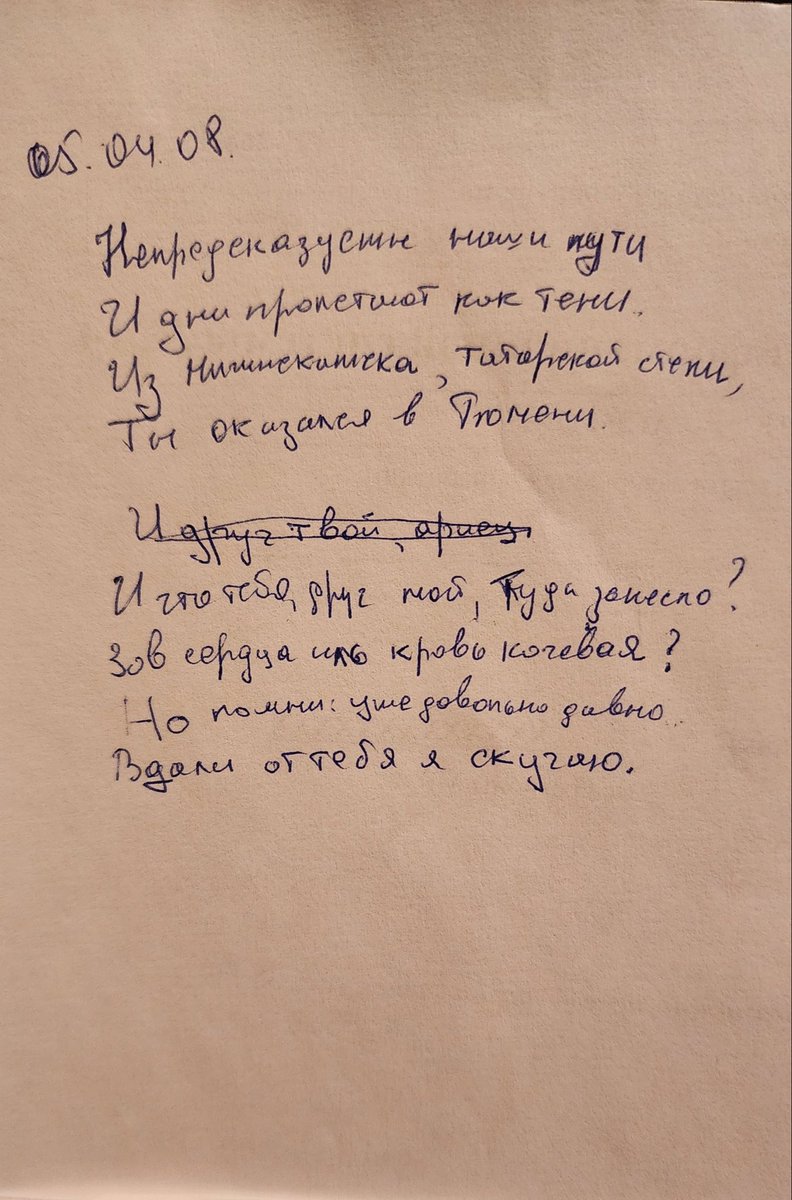 05.04.08.
Непредсказуемы наши пути
И дни пролетают как тени.
Из Нижнекамска, татарской степи,
Ты оказался в Тюмени.
И друг твой, ариец
И что тебя, друг мой, туда занесло?
Зов сердца иль кровь кочевая?
Но помни: уже довольно давно
Вдали от тебя я скучаю.